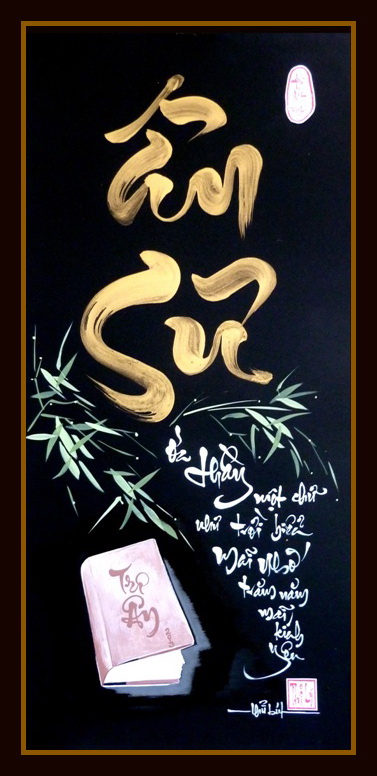 Ân
Sư
Ơn
thầy
một chữ
như trời biển
Mãi nhớ
trăm năm
mãi
kính
yêu
Tri
Ân